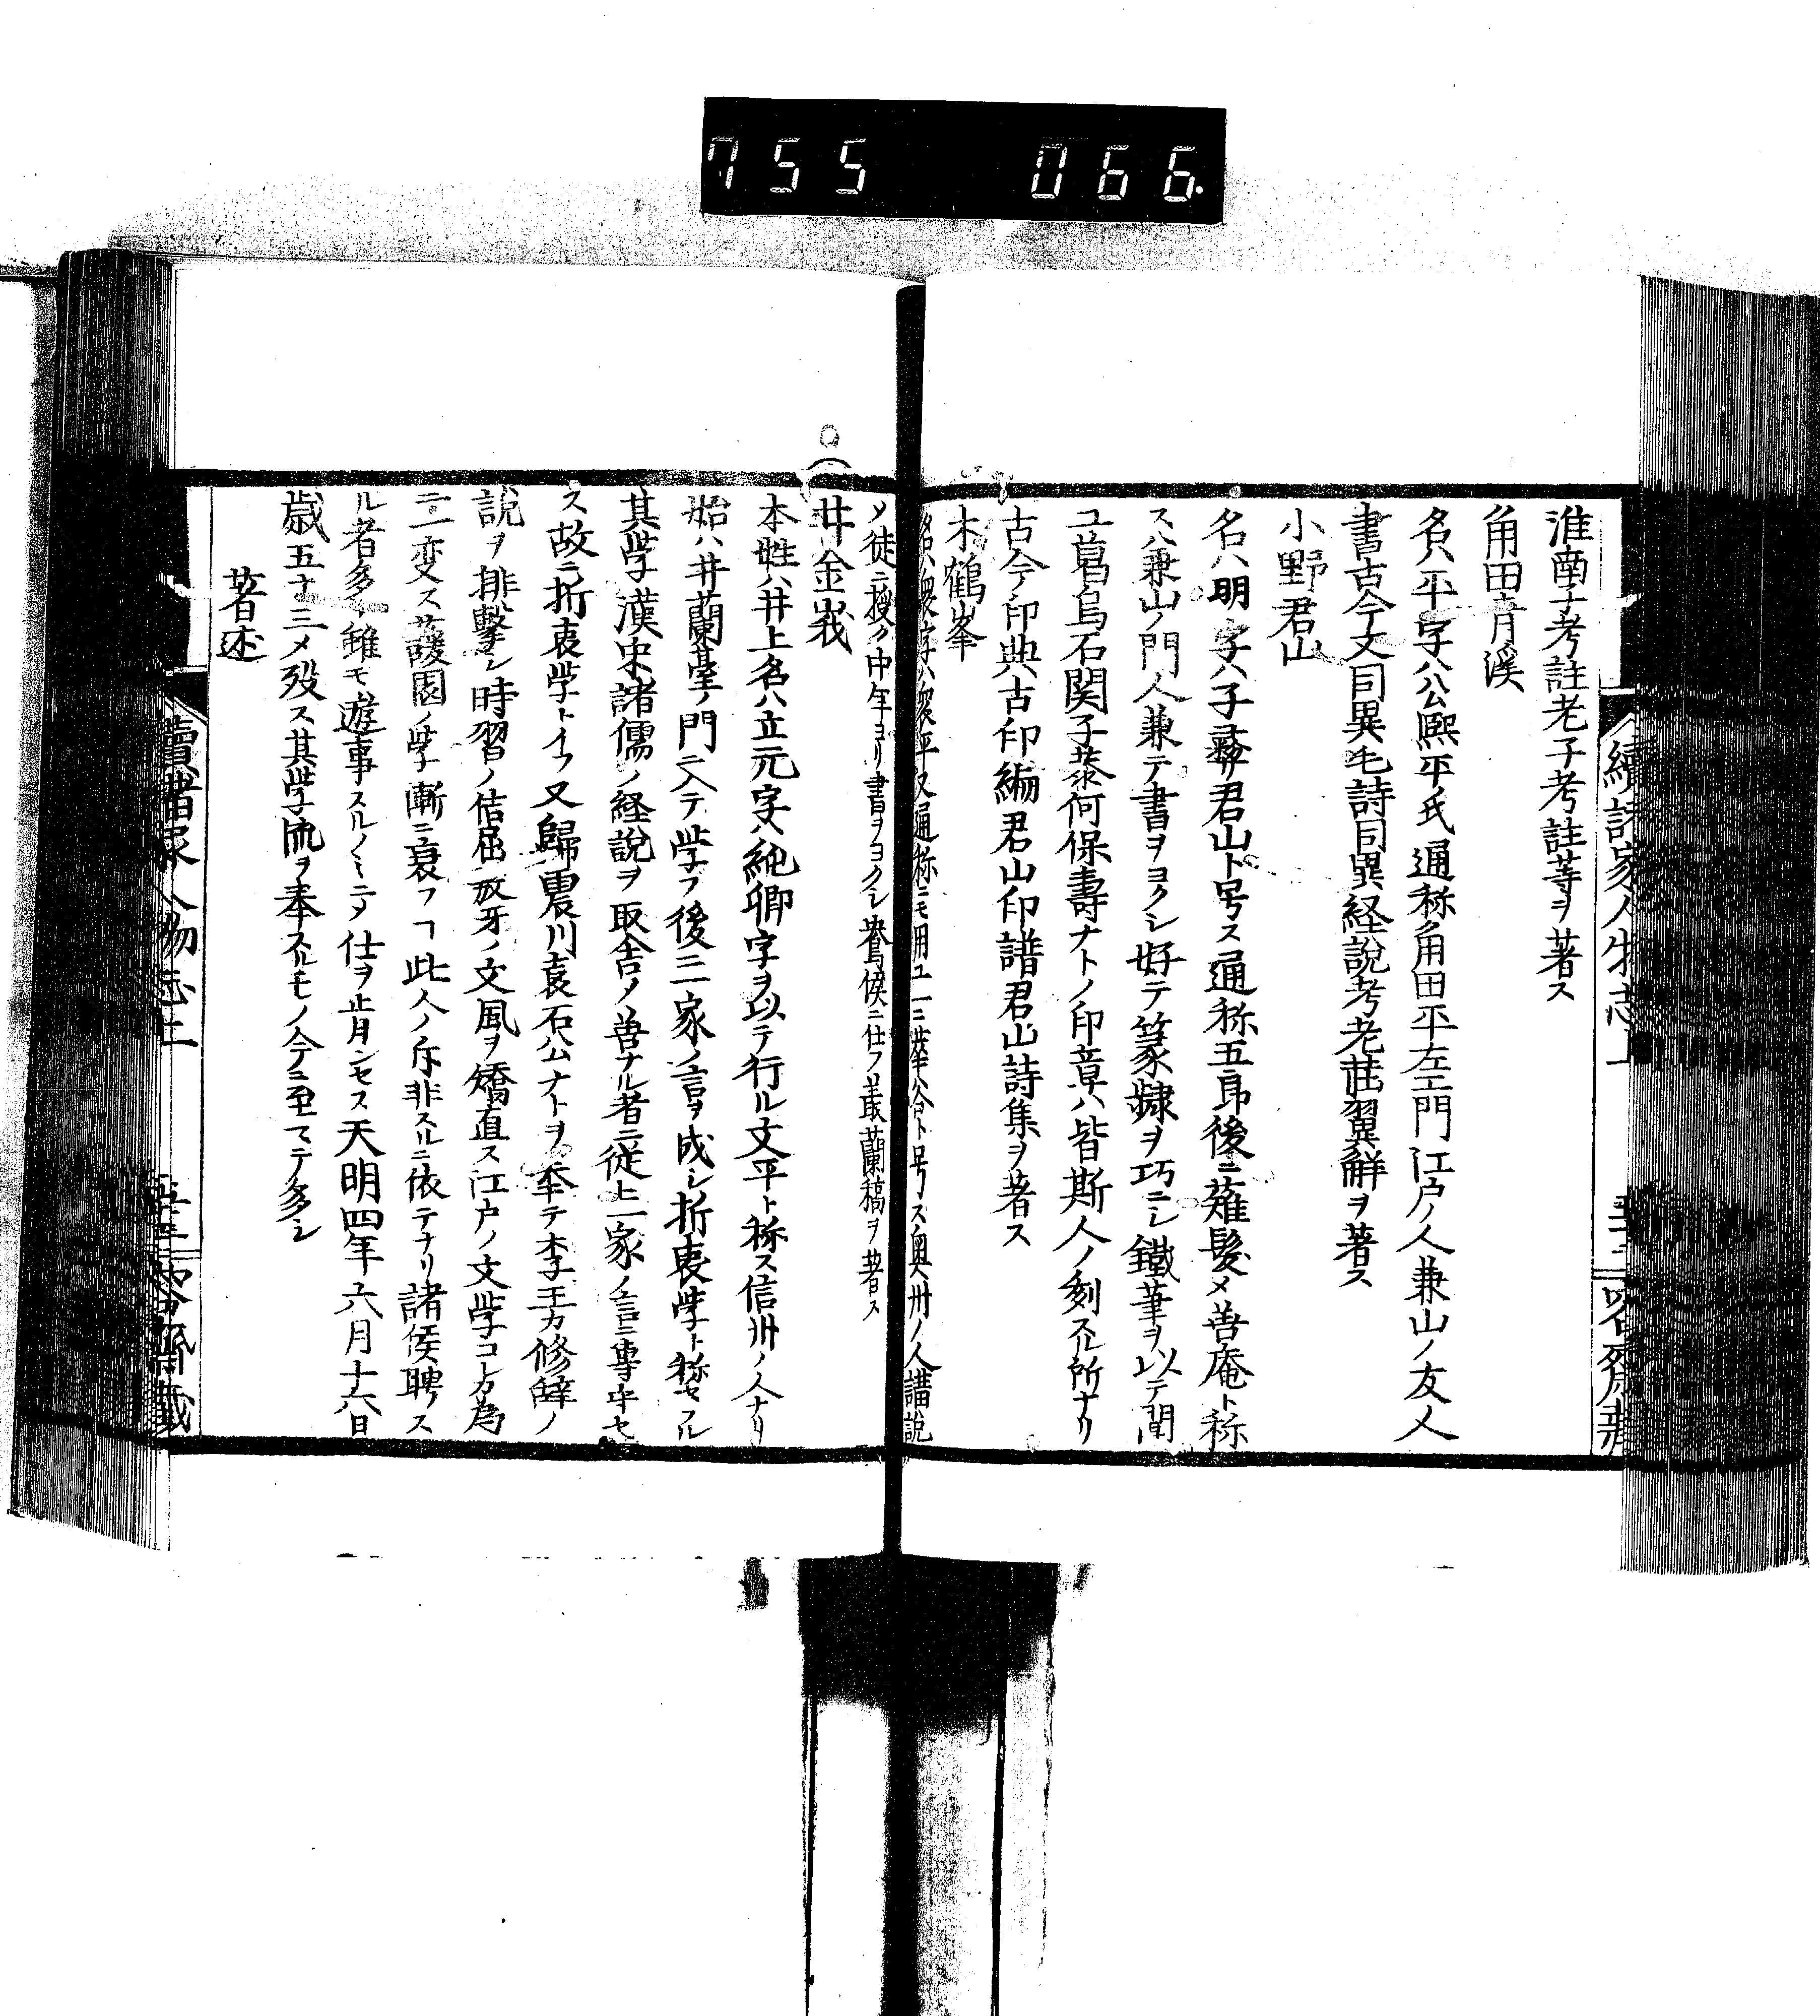 755 066
續諸家人物志 上
淮南子考註老子考註等ヲ著ス
角田青溪
名ハ平字ハ公熙平氏通称角田平左エ門江戸ノ人兼山ノ友人
書古今文同異毛詩同異経説考老荘翼解ヲ著ス
小野君山
名ハ明字ハ子彝君山ト号ス通称五郎後ニ薙髪メ善庵ト称
ス兼山ノ門人兼テ書ヲヨクシ好テ篆隷ヲ巧ニシ鐵筆ヲ以テ聞
ユ葛烏石関子恭何保壽ナトノ印章ハ皆斯人ノ刻スル所ナリ
古今印典古印編君山印譜君山詩集ヲ著ス
木鶴峯
名ハ字ハ平又通称ニモ用ユ一ニ号ス奥州ノ人講説
ノ徒ニ授ク中年ヨリ書ヲヨクシ侯ニ仕フ叢蘭稿ヲ著ス
井金峩
本姓ハ井上名ハ立元字ハ純卿字ヲ以テ行ル文平ト称ス信州ノ人ナリ
始ハ井蘭臺ノ門ニ入テ学フ後ニ一家ノ言ヲ成シ折衷学ト称セラル
其学漢宋諸儒ノ経説ヲ取舎メ善ナル者ニ従上一家ノ言ニ專ラセ
ス故ニ折衷学トイフ又歸震川袁石公ナトヲ奉テ李王カ修辞ノ
説ヲ排撃シ時習ノ佶屈敖牙ノ文風ヲ矯直ス江戸ノ文学コレカ為
ニ一変ス蘐園ノ学漸ニ衰フヿ此人ノ斥非スルニ依テナリ諸侯聘ス
ル者多ト雖モ遊事スルノミニテ仕ヲ肯ンセス天明四年六月十六日
歳五十三メ歿ス其学流ヲ奉スルモノ今ニ至マテ多シ
著述
續諸家人物志 上